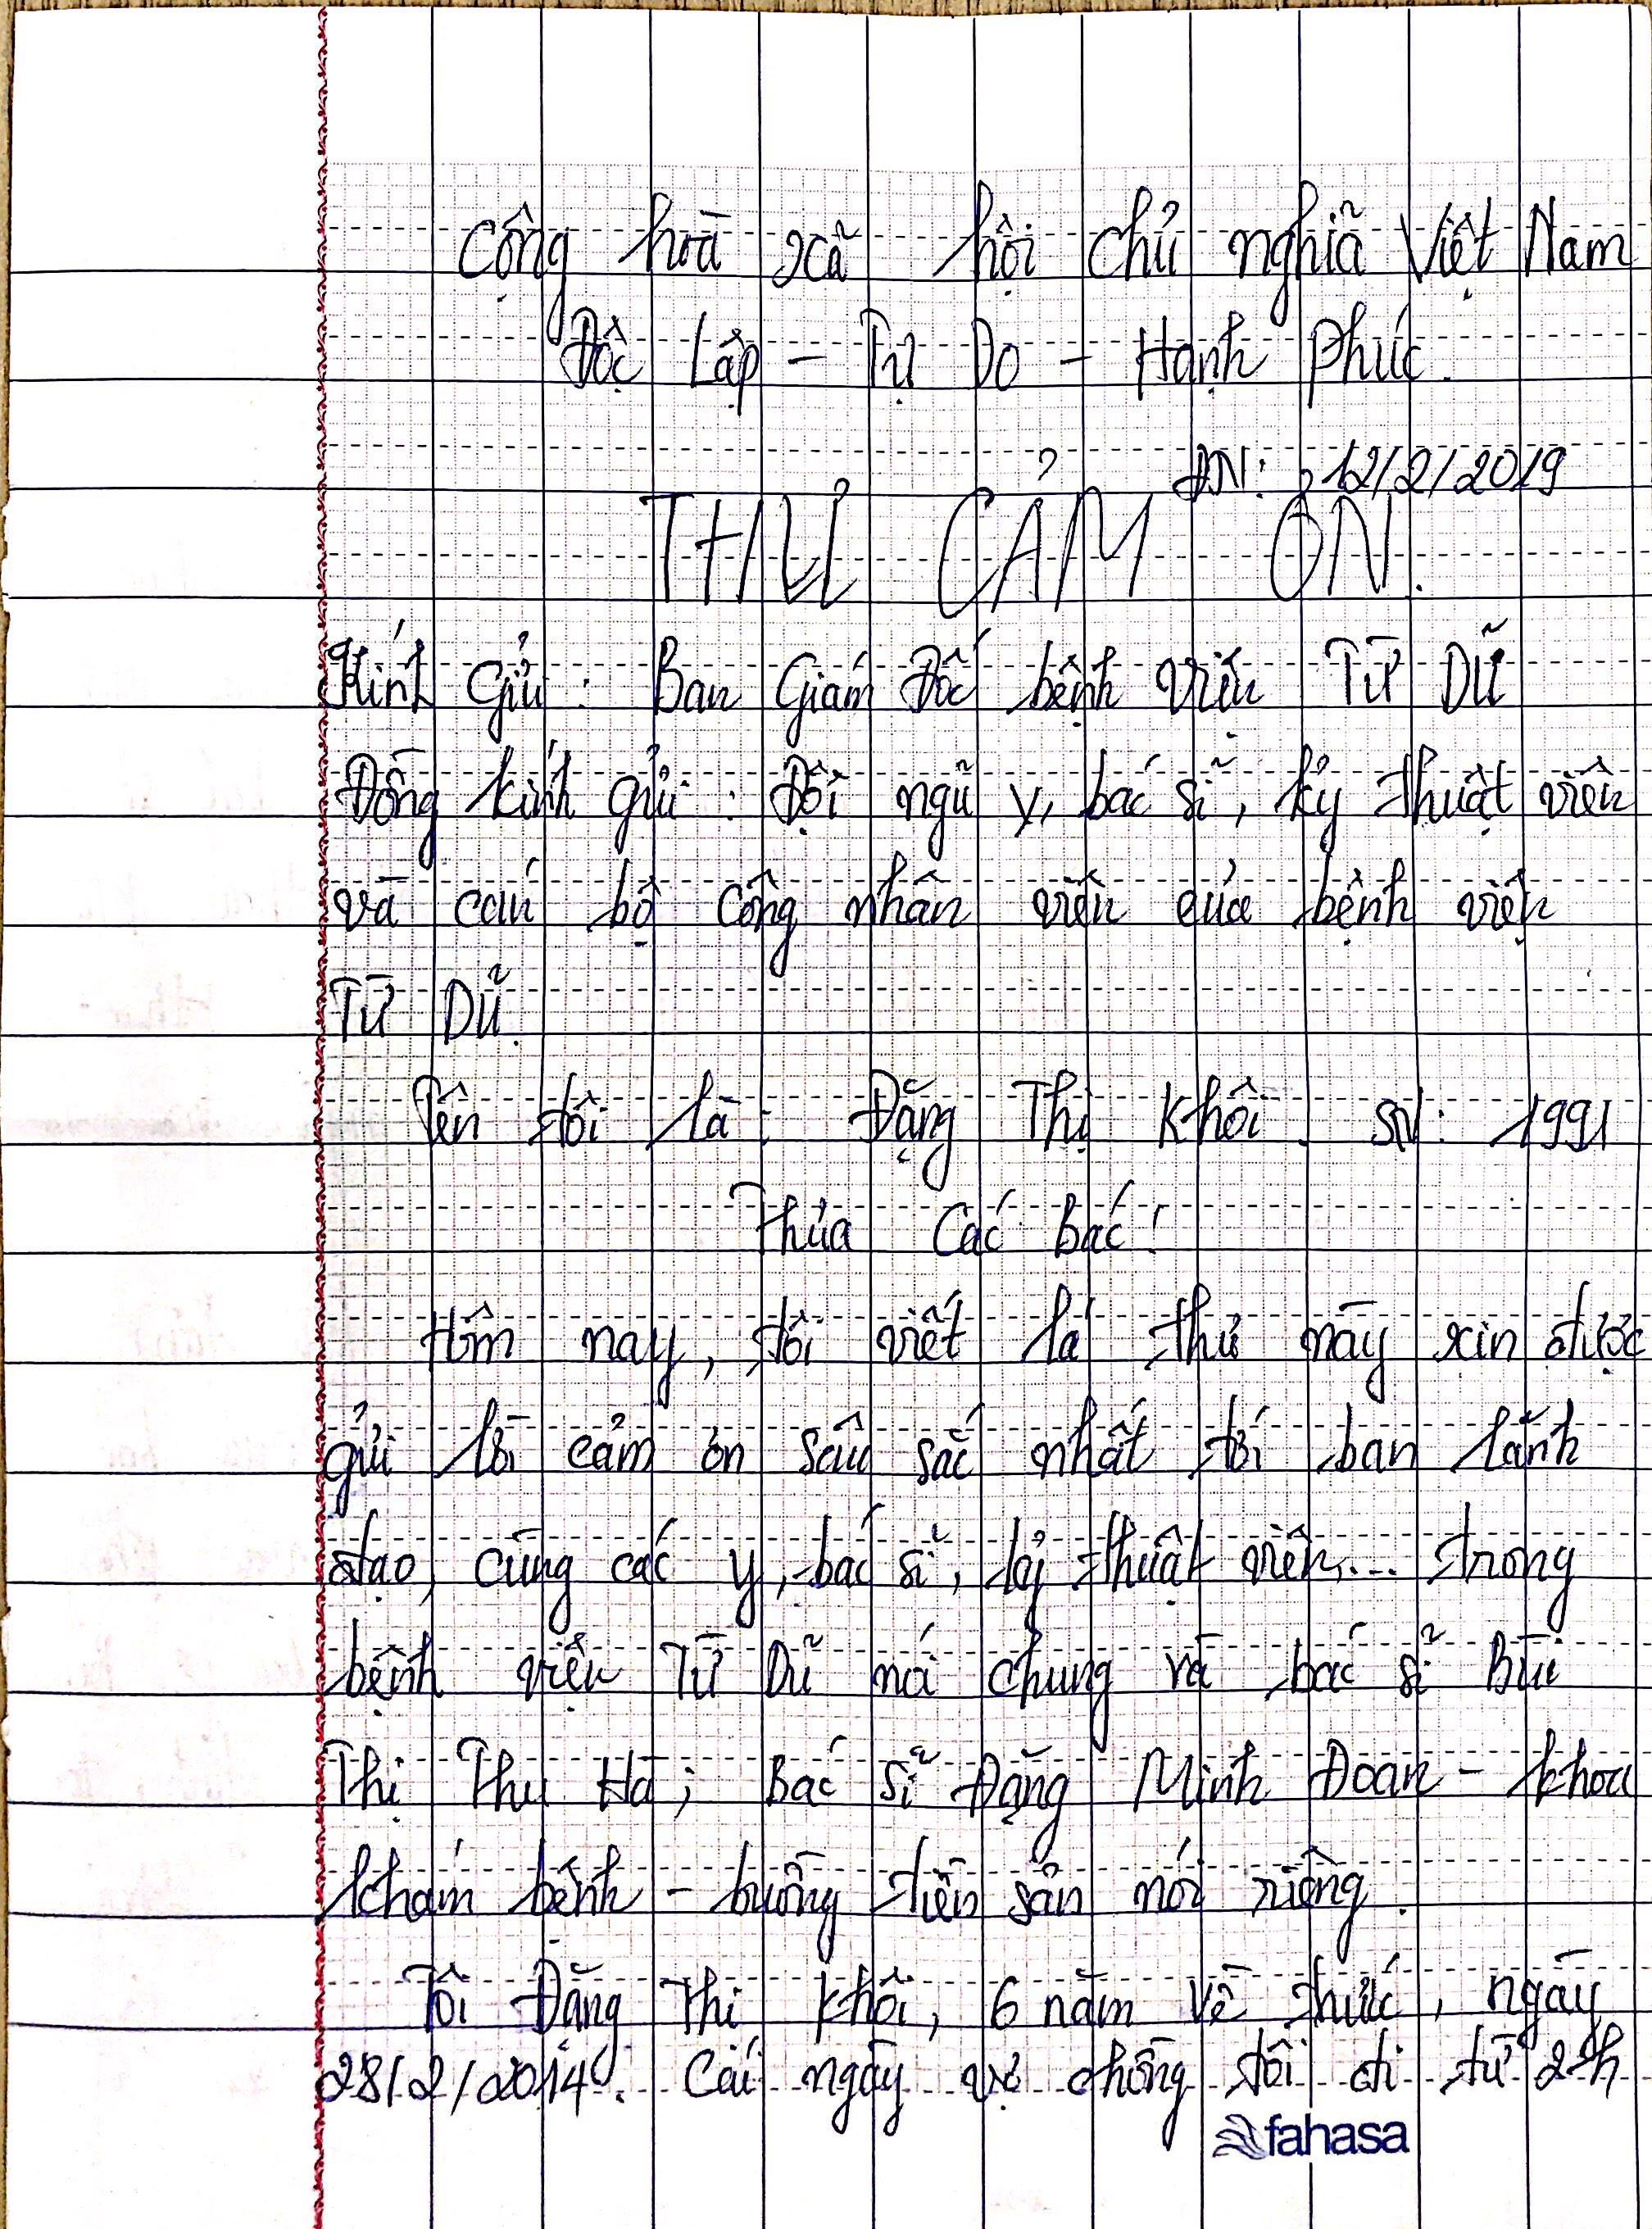 Cộng hoà xã hội chủ nghĩa Việt Nam
Độc Lập - Tự Do - Hạnh Phúc.
ĐN: 12/2/2019
THƯ CẢM ƠN.
Kính Gửi: Ban Giám Đốc bệnh viện Từ Dũ
Đồng kính gửi: Đội ngũ y, bác sĩ, kỹ thuật viên
và cán bộ công nhân viên của bệnh viện
Từ Dũ.
Tên tôi là: Đặng Thị Khôi. SN: 1991
Thưa Các Bác!
Hôm nay, tôi viết lá thư này xin được
gửi lời cảm ơn sâu sắc nhất tới ban lãnh
đạo, cùng các y, bác sĩ, kỹ thuật viên... trong
bệnh viện Từ Dũ nói chung và bác sĩ Bùi
Thị Thu Hà; Bác sĩ Đặng Minh Đoan - khoa
khám bệnh - buồng tiền sản nói riêng.
Tôi Đặng Thị Khôi, 6 năm về trước, ngày
28/2/2014. Cái ngày vợ chồng tôi đi từ 2h
fahasa